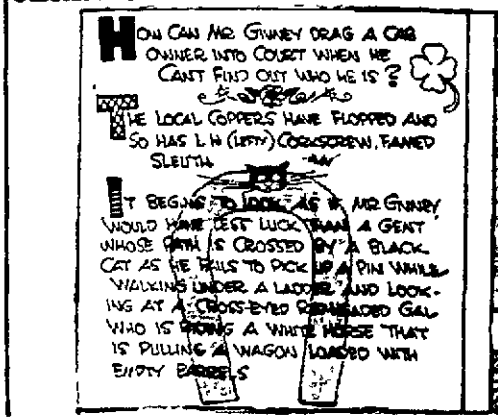 HOW CAN MR GINNEY DRAG A CAB
OWNER INTO COURT WHEN HE
CANT FIND OUT WHO HE IS?
THE LOCAL COPPERS HAVE FLOPPED AND
SO HAS L.H (LEFTY) CORKSCREW, FAMED
SLEUTH
IT BEGINS TO LOOK AS IF MR GINNEY
WOULD HAVE LESS LUCK THAN A GENT
WHOSE PATH IS CROSSED BY A BLACK
CAT AS HE FAILS TO PICK UP A PIN WHILE
WALKING UNDER A LADDER AND LOOK-
ING AT A CROSS-EYED REDHEADED GAL
WHO IS RIDING A WHITE HORSE THAT
IS PULLING A WAGON LOADED WITH
EMPTY BARRELS